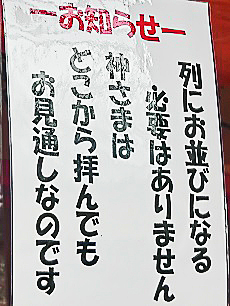 ーお知らせー
列にお並びになる
必要はありません
神さまは
どこから拝んでも
お見通しなのです